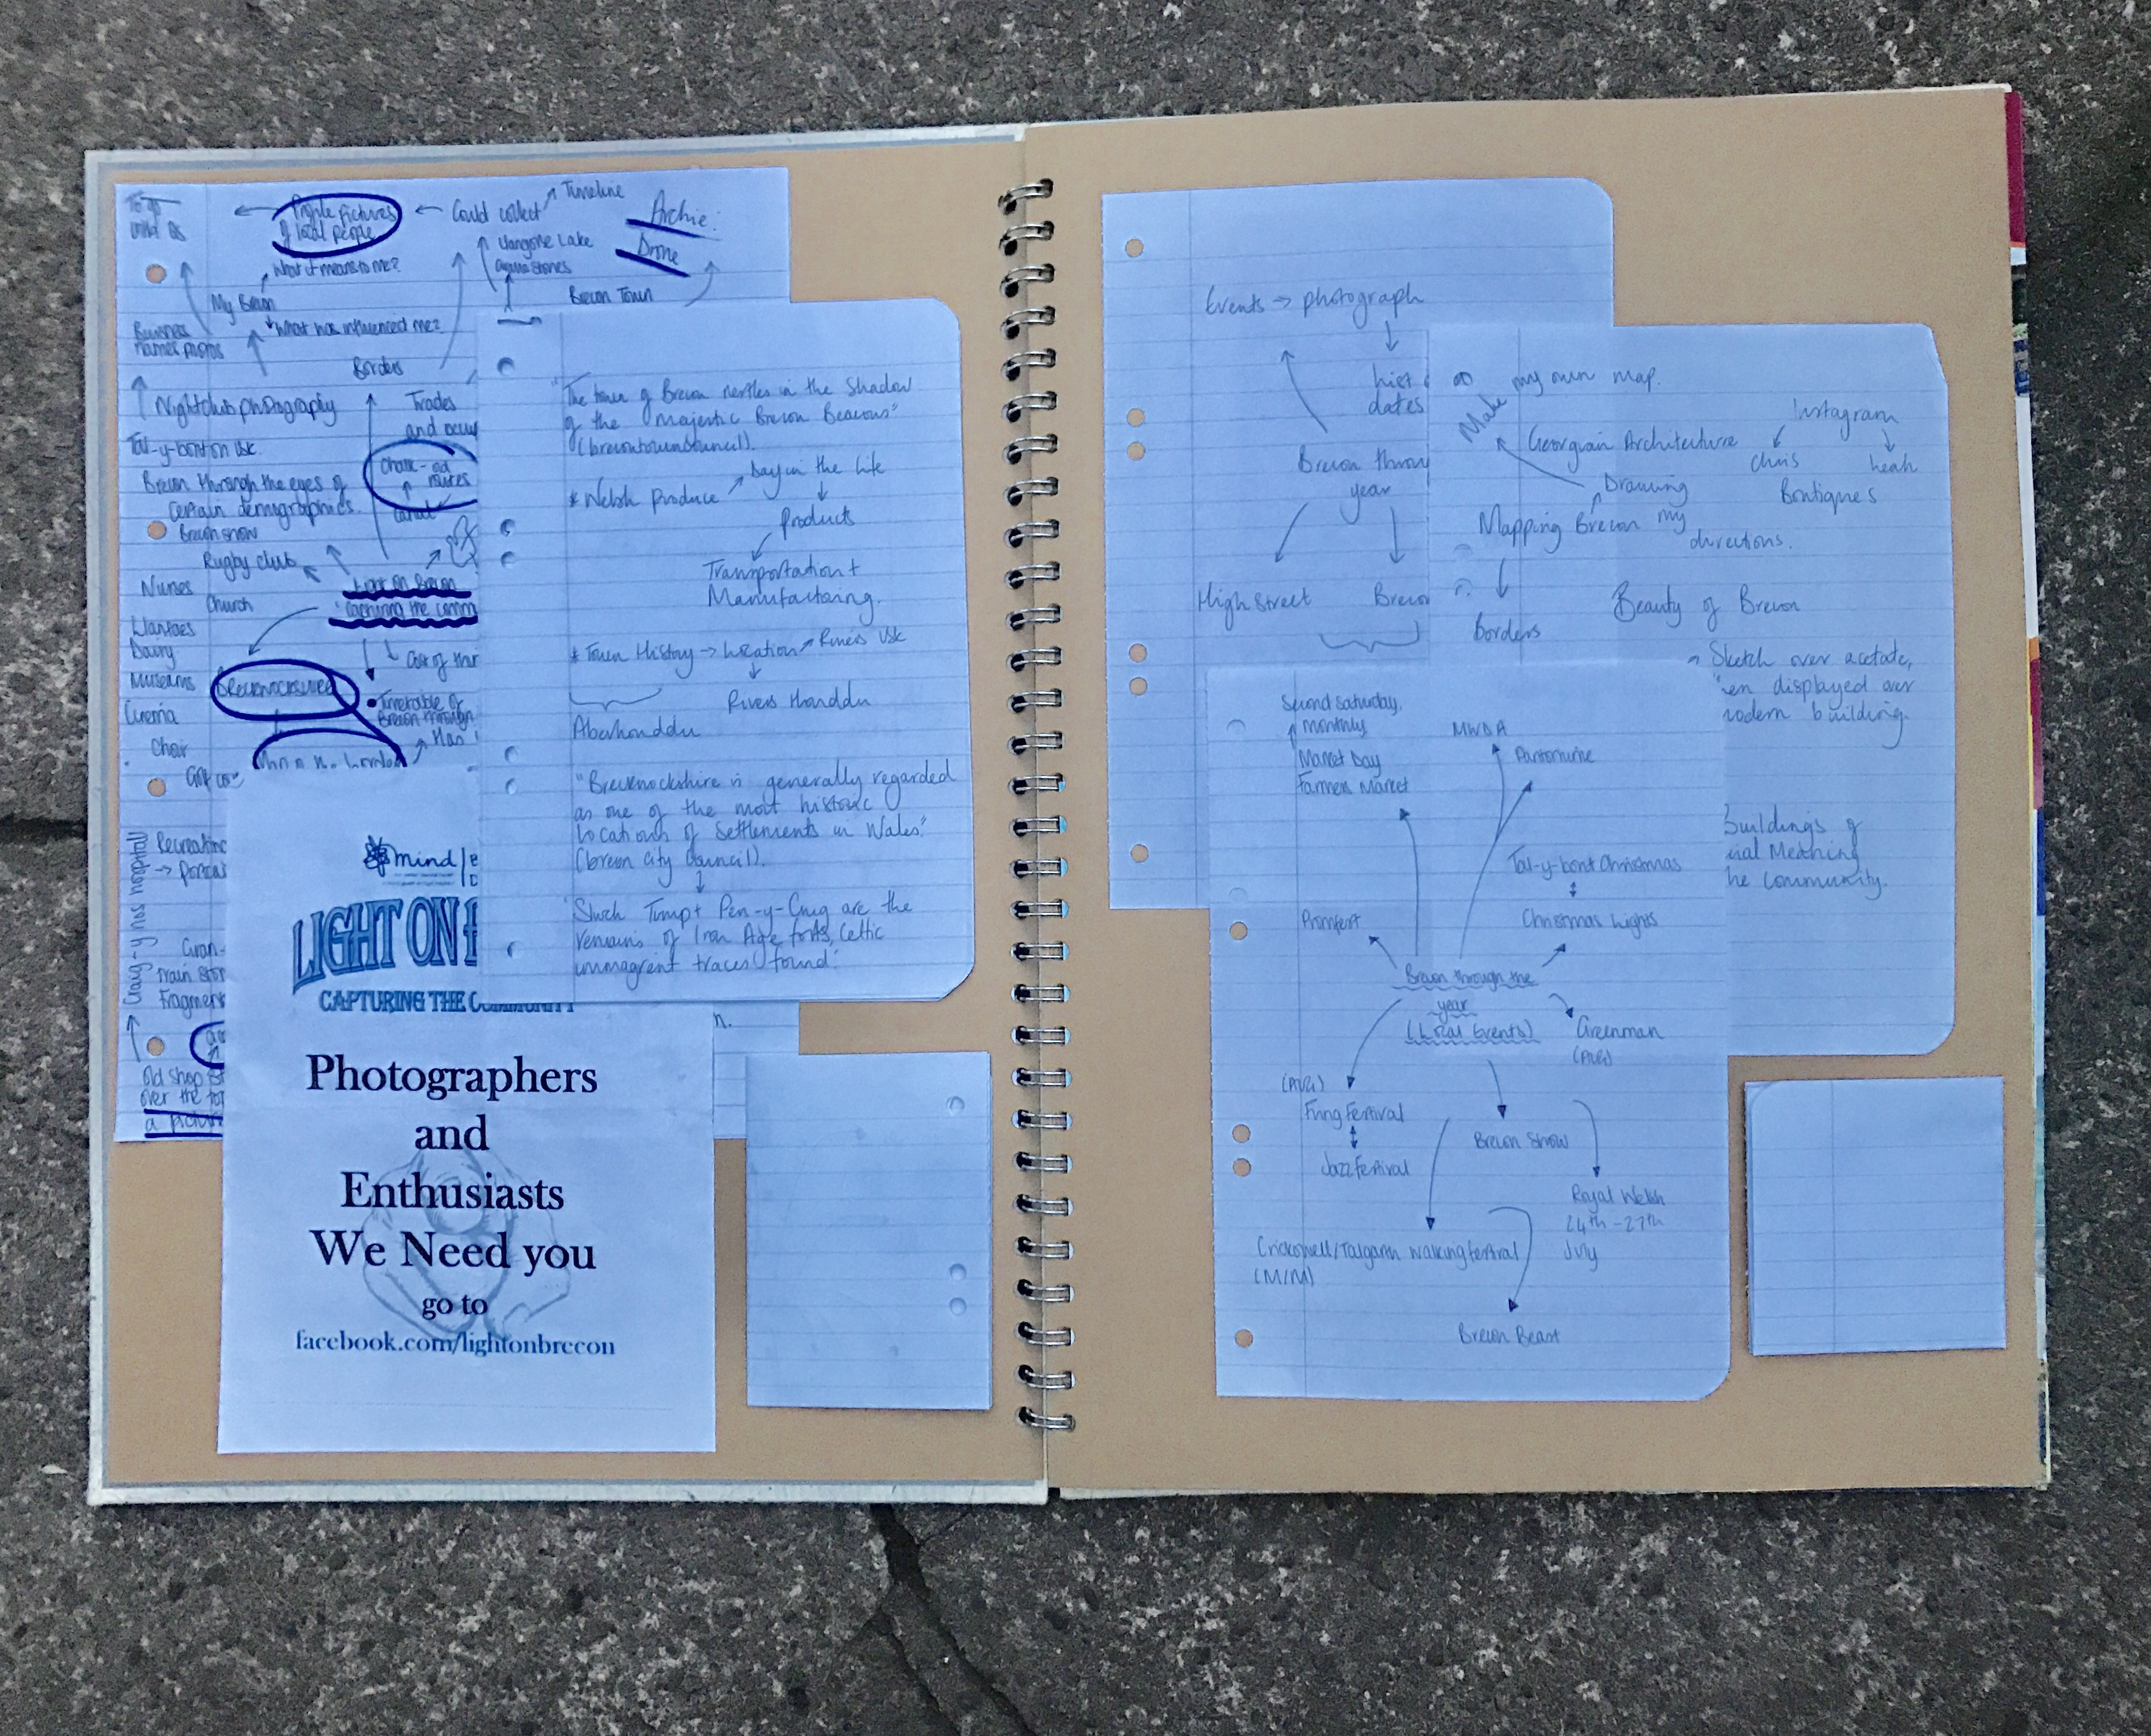 Profile Pictures
of local people
Could collect
Timeline
Archie:
Drone
Llangorse Lake
What it means to me?
My Brecon
What has influenced me?
Brecon Town
Business
names photos
Borders
Nightclub photography
Trades
and occu
Tal-y-bont on Usk
Brecon through the eyes of
certain demographics.
Canal
Brecon show
Rugby club
Nurses
Church
Light On Brecon
'Capturing the comm
Dairy
Museums
Brecknockshire
Cinema
Choir
Timetable of
Brecon through
Craig-y-nos hospital
Recreating
Train
Fragment
old shop
over the top
a picture
mind
LIGHT ON
CAPTURING THE COMMUNITY
Photographers
and
Enthusiasts
We Need you
go to
facebook.com/lightonbrecon
"The town of Brecon nestles in the shadow
of the majestic Brecon Beacons"
(brecontowncouncil).
* Welsh Produce
Day in the life
Products
Transportation +
Manufacturing.
* Town History → Location
Rivers Usk
Rivers Honddu
Aberhonddu
"Brecknockshire is generally regarded
as one of the most historic
locations of settlements in Wales."
(brecon city council).
Slwch Tump + Pen-y-Crug are the
remains of Iron Age forts, Celtic
immagrent traces found.'
Events → photograph
List
dates
Brecon throu
year
High Street
Brecon
Make
my own map.
Instagram
Georgian Architecture
Chris
Leah
Drawing
Boutiques
Mapping Brecon my
directions.
Borders
Beauty of Brecon
Sketch over acetate,
en displayed over
modern building.
Buildings of
Meaning
he community.
Second Saturday,
monthly
Market Day
Farmers Market
MWDA
Pantomime
Tal-y-bont Christmas
Christmas Lights
Brecon through the
year
(Local Events)
Greenman
(AUG)
(AUG)
Fring Festival
Jazz Festival
Brecon Show
Royal Welsh
24th - 27th
July
Crickhowell/Talgarth walking festival
(M/M)
Brecon Beast